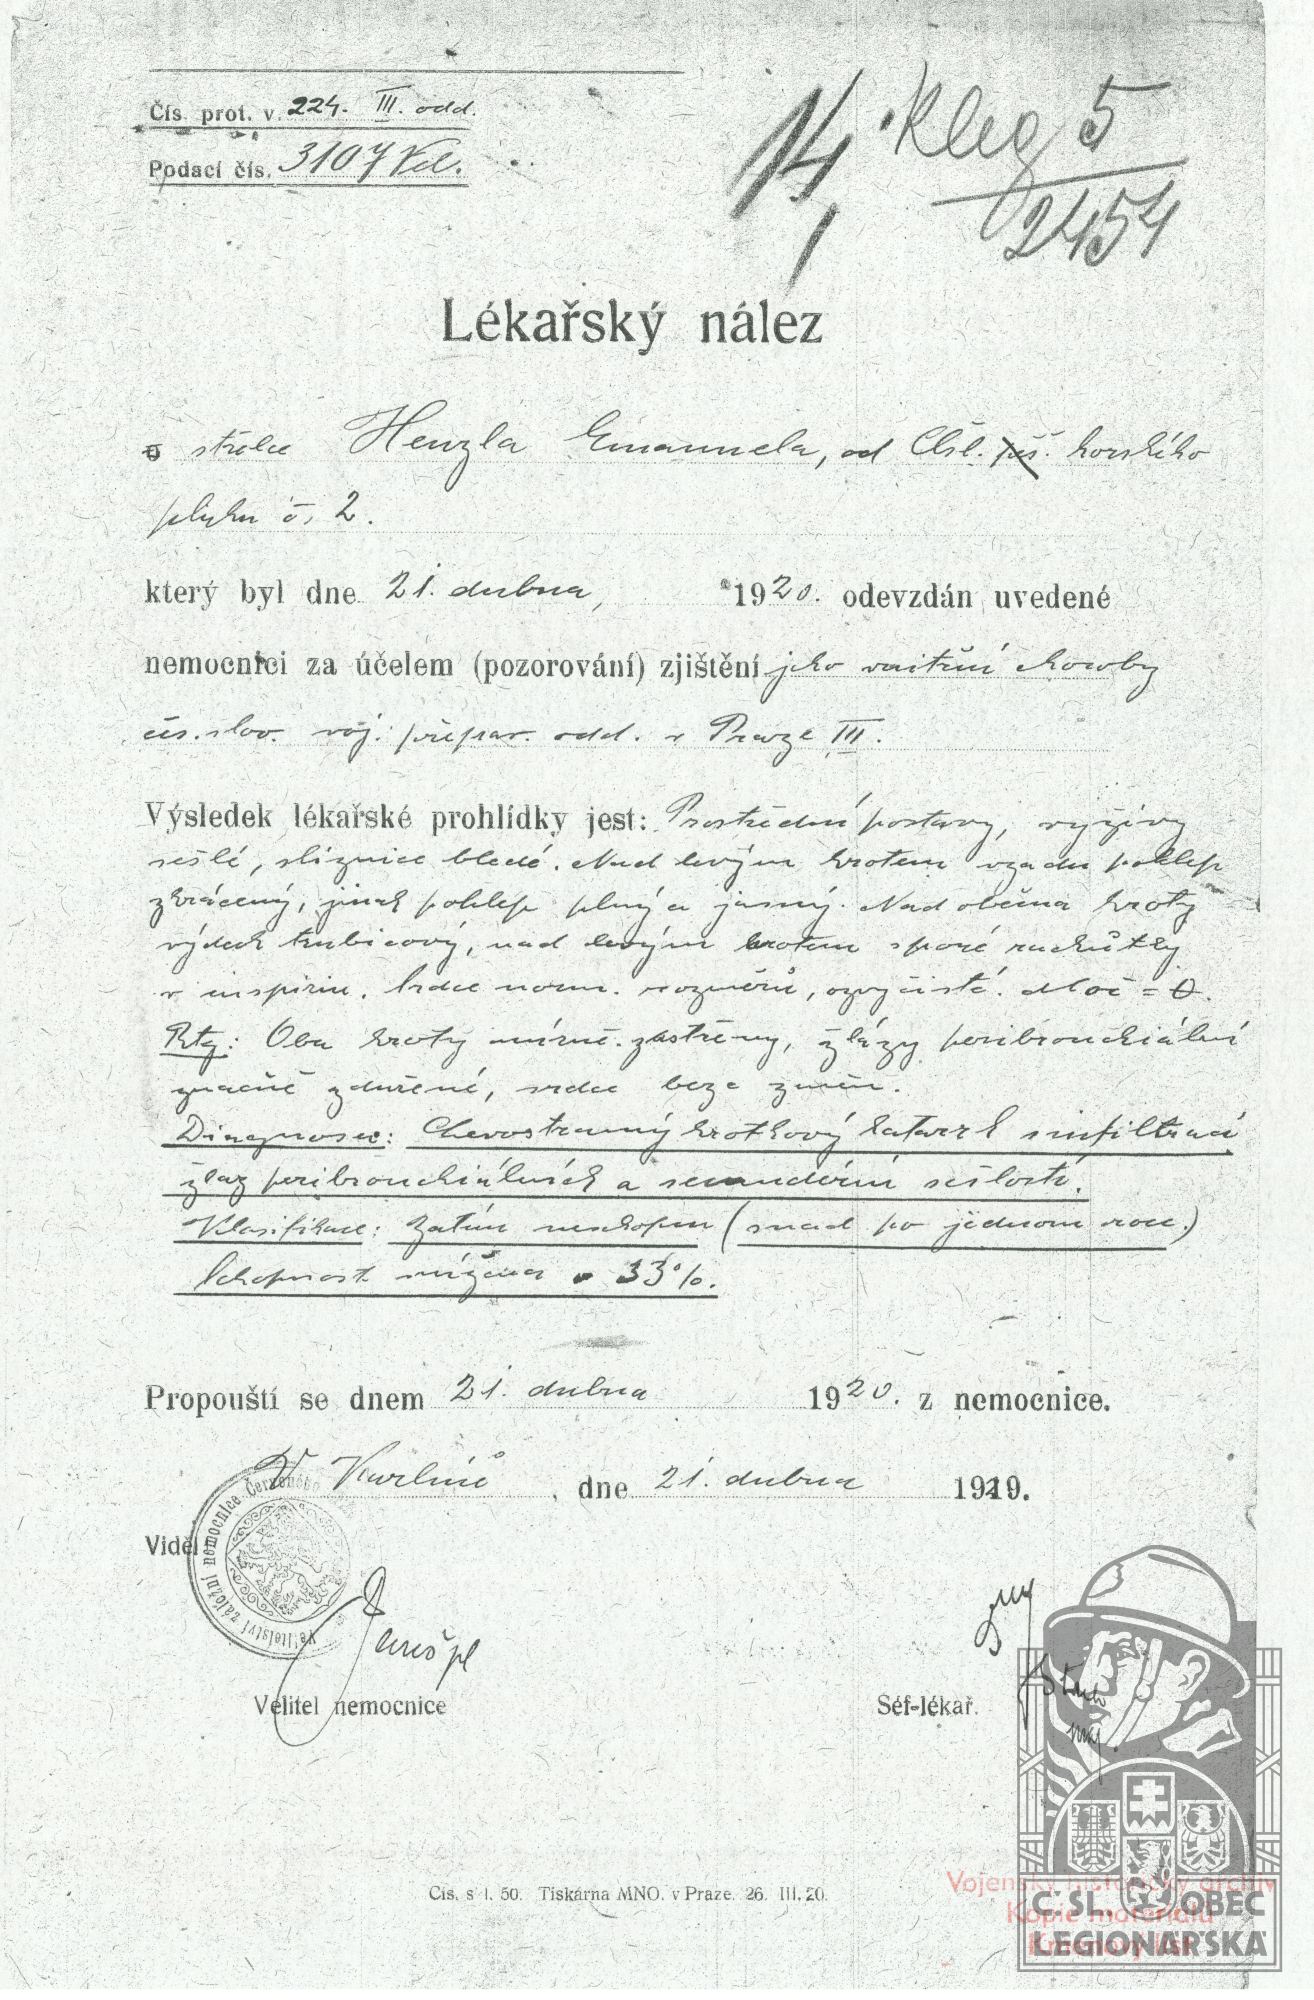 Čís. prot. v. 224. III. odd.
Podací čís. 3107 Vel.
14 Kleg 5
1 2454
Lékařský nález
o střelce Henzla Emanuela, od Čsl. pěš. horského
pluku č. 2.
který byl dne 21. dubna, 1920. odevzdán uvedené
nemocnici za účelem (pozorování) zjištění jeho vnitřní choroby
čes. slov. voj. přepar. odd. v Praze III.
Výsledek lékařské prohlídky jest: Prostřední postavy, výživy
sešlé, sliznice bledé. Nad levým hrotem vzadu poklep
zkrácený, jinak poklep plný a jasný. Nad oběma hroty
výdech trubicový, nad levým hrotem sporé rachůtky
v inspiriu. Srdce norm. rozměrů, ozvy čisté. Moč = 0.
Rtg: Oba hroty mírně zastřeny, žlázy peribronchiální
značně zduřené, srdce beze změn.
Diagnosa: Levostranný hrotkový katarrh s infiltrací
žlaz peribronchiálních a sekundérní sešlostí.
Klasifikace: Zatím neschopen (snad po jednom roce.)
Schopnost snížena o 33%.
Propouští se dnem 21. dubna 1920. z nemocnice.
V Karlíně, dne 21. dubna 1920.
Viděl:
velitelství záložní nemocnice Červeného
Velitel nemocnice
Šéf-lékař.
Čís. skl. 50. Tiskárna MNO. v Praze. 26. III. 20.
Vojenský historický archiv
Kopie materiálu
Kmenový list
Č. SL. OBEC
LEGIONÁŘSKÁ